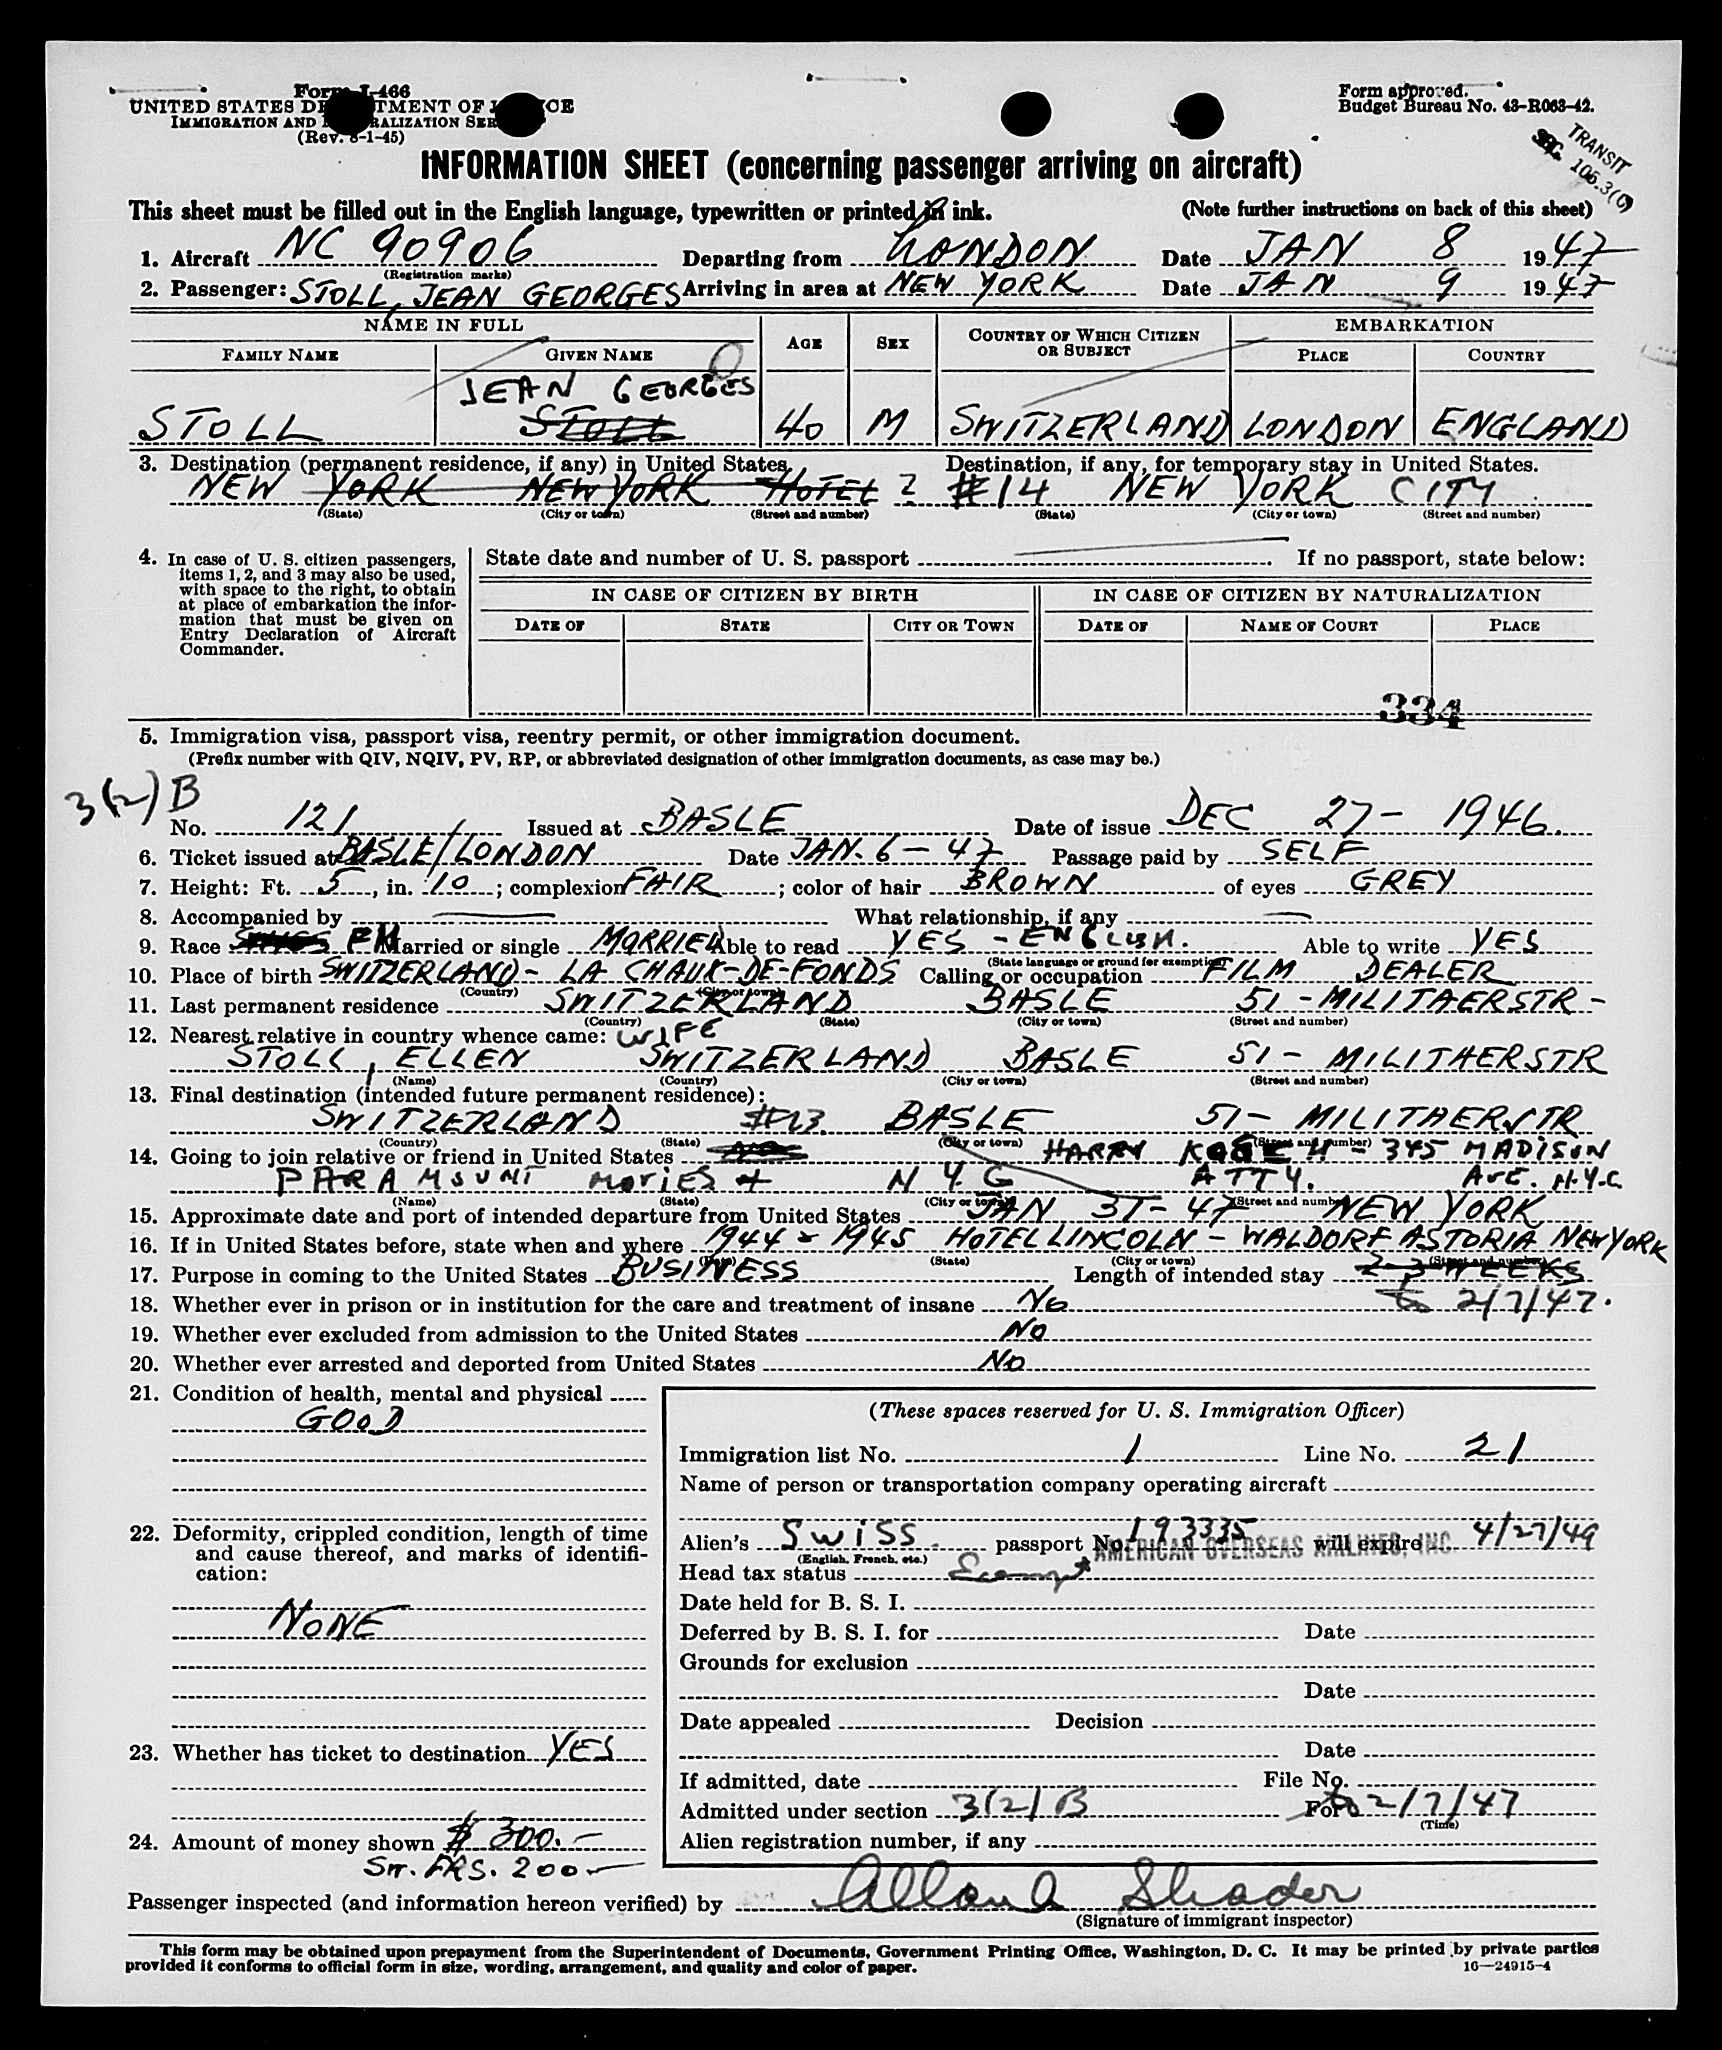 Form I-466
UNITED STATES DEPARTMENT OF JUSTICE
IMMIGRATION AND NATURALIZATION SERVICE
(Rev. 8-1-45)
Form approved.
Budget Bureau No. 43-R063-42.
TRANSIT
SEC. 105.3(c)
INFORMATION SHEET (concerning passenger arriving on aircraft)
This sheet must be filled out in the English language, typewritten or printed in ink. (Note further instructions on back of this sheet)
1. Aircraft NC 90906 Departing from LONDON Date JAN 8 1947
(Registration marks)
2. Passenger: STOLL, JEAN GEORGES Arriving in area at NEW YORK Date JAN 9 1947
NAME IN FULL AGE SEX COUNTRY OF WHICH CITIZEN OR SUBJECT EMBARKATION
FAMILY NAME GIVEN NAME PLACE COUNTRY
JEAN GEORGES
STOLL STOLL 40 M SWITZERLAND LONDON ENGLAND
3. Destination (permanent residence, if any) in United States. Destination, if any, for temporary stay in United States.
NEW YORK NEW YORK HOTEL ? #14 NEW YORK CITY
(State) (City or town) (Street and number) (State) (City or town) (Street and number)
4. In case of U. S. citizen passengers, items 1, 2, and 3 may also be used, with space to the right, to obtain at place of embarkation the information that must be given on Entry Declaration of Aircraft Commander.
State date and number of U. S. passport . If no passport, state below:
IN CASE OF CITIZEN BY BIRTH IN CASE OF CITIZEN BY NATURALIZATION
DATE OF STATE CITY OR TOWN DATE OF NAME OF COURT PLACE
334
5. Immigration visa, passport visa, reentry permit, or other immigration document.
(Prefix number with QIV, NQIV, PV, RP, or abbreviated designation of other immigration documents, as case may be.)
3(2) B
No. 121 Issued at BASLE Date of issue DEC 27- 1946.
6. Ticket issued at BASLE/LONDON Date JAN. 6 - 47 Passage paid by SELF
7. Height: Ft. 5, in. 10; complexion FAIR; color of hair BROWN of eyes GREY
8. Accompanied by What relationship, if any
9. Race Married or single MARRIED Able to read YES - ENGLISH. Able to write YES
(State language or ground for exemption)
10. Place of birth SWITZERLAND - LA CHAUX-DE-FONDS Calling or occupation FILM DEALER
(Country) (City or town)
11. Last permanent residence SWITZERLAND BASLE 51 - MILITAERSTR -
(Country) (State) (City or town) (Street and number)
12. Nearest relative in country whence came: WIFE
STOLL, ELLEN SWITZERLAND BASLE 51 - MILITHERSTR
(Name) (Country) (City or town) (Street and number)
13. Final destination (intended future permanent residence):
SWITZERLAND #13 BASLE 51 - MILITHERSTR
(Country) (State) (City or town) (Street and number)
14. Going to join relative or friend in United States HARRY - 345 MADISON
PARAMSUMT MOVIES + N Y. C ATTY. AVE. N.Y.C.
(Name) (State) (City or town) (Street and number)
15. Approximate date and port of intended departure from United States JAN 31 - 47 NEW YORK
16. If in United States before, state when and where 1944 - 1945 HOTEL LINCOLN - WALDORF ASTORIA NEW YORK
(State) (City or town) (Street and number)
17. Purpose in coming to the United States BUSINESS Length of intended stay 2-3 WEEKS
to 2/7/47.
18. Whether ever in prison or in institution for the care and treatment of insane No
19. Whether ever excluded from admission to the United States No
20. Whether ever arrested and deported from United States No
21. Condition of health, mental and physical
GOOD
22. Deformity, crippled condition, length of time and cause thereof, and marks of identification:
NONE
23. Whether has ticket to destination YES
24. Amount of money shown $ 300.-
Sw. FRS. 200 -
(These spaces reserved for U. S. Immigration Officer)
Immigration list No. 1 Line No. 21
Name of person or transportation company operating aircraft
AMERICAN OVERSEAS AIRLINES, INC.
Alien's SWISS passport No. 193335 will expire 4/27/49
(English, French, etc.)
Head tax status Exempt
Date held for B. S. I.
Deferred by B. S. I. for Date
Grounds for exclusion
Date
Date appealed Decision
Date
If admitted, date File No.
Admitted under section 3(2) B For to 2/7/47
(Time)
Alien registration number, if any
Passenger inspected (and information hereon verified) by Allan A Shader
(Signature of immigrant inspector)
This form may be obtained upon prepayment from the Superintendent of Documents, Government Printing Office, Washington, D. C. It may be printed by private parties
provided it conforms to official form in size, wording, arrangement, and quality and color of paper. 16-24915-4